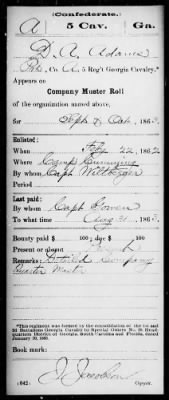 (Confederate.)
A 5 Cav. Ga.
D. A. Adams
Pvt, Co. A, 5 Reg't Georgia Cavalry.*
Appears on
Company Muster Roll
of the organization named above,
for Sept & Oct, 1863.
Enlisted:
When Feby 22, 186
Where Camp
By whom Capt
Period
Last paid:
By whom Capt Bowen
To what time Aug 31, 1863.
Bounty paid $ 100; due $ 100
Present or absent
Remarks: Detailed Company
Quarter Master
*This regiment was formed by the consolidation of the 1st and 2d Battalions Georgia Cavalry by Special Orders No. 20, Headquarters District of Georgia, South Carolina and Florida, dated January 20, 1863.
Book mark:
(642) Copyist.